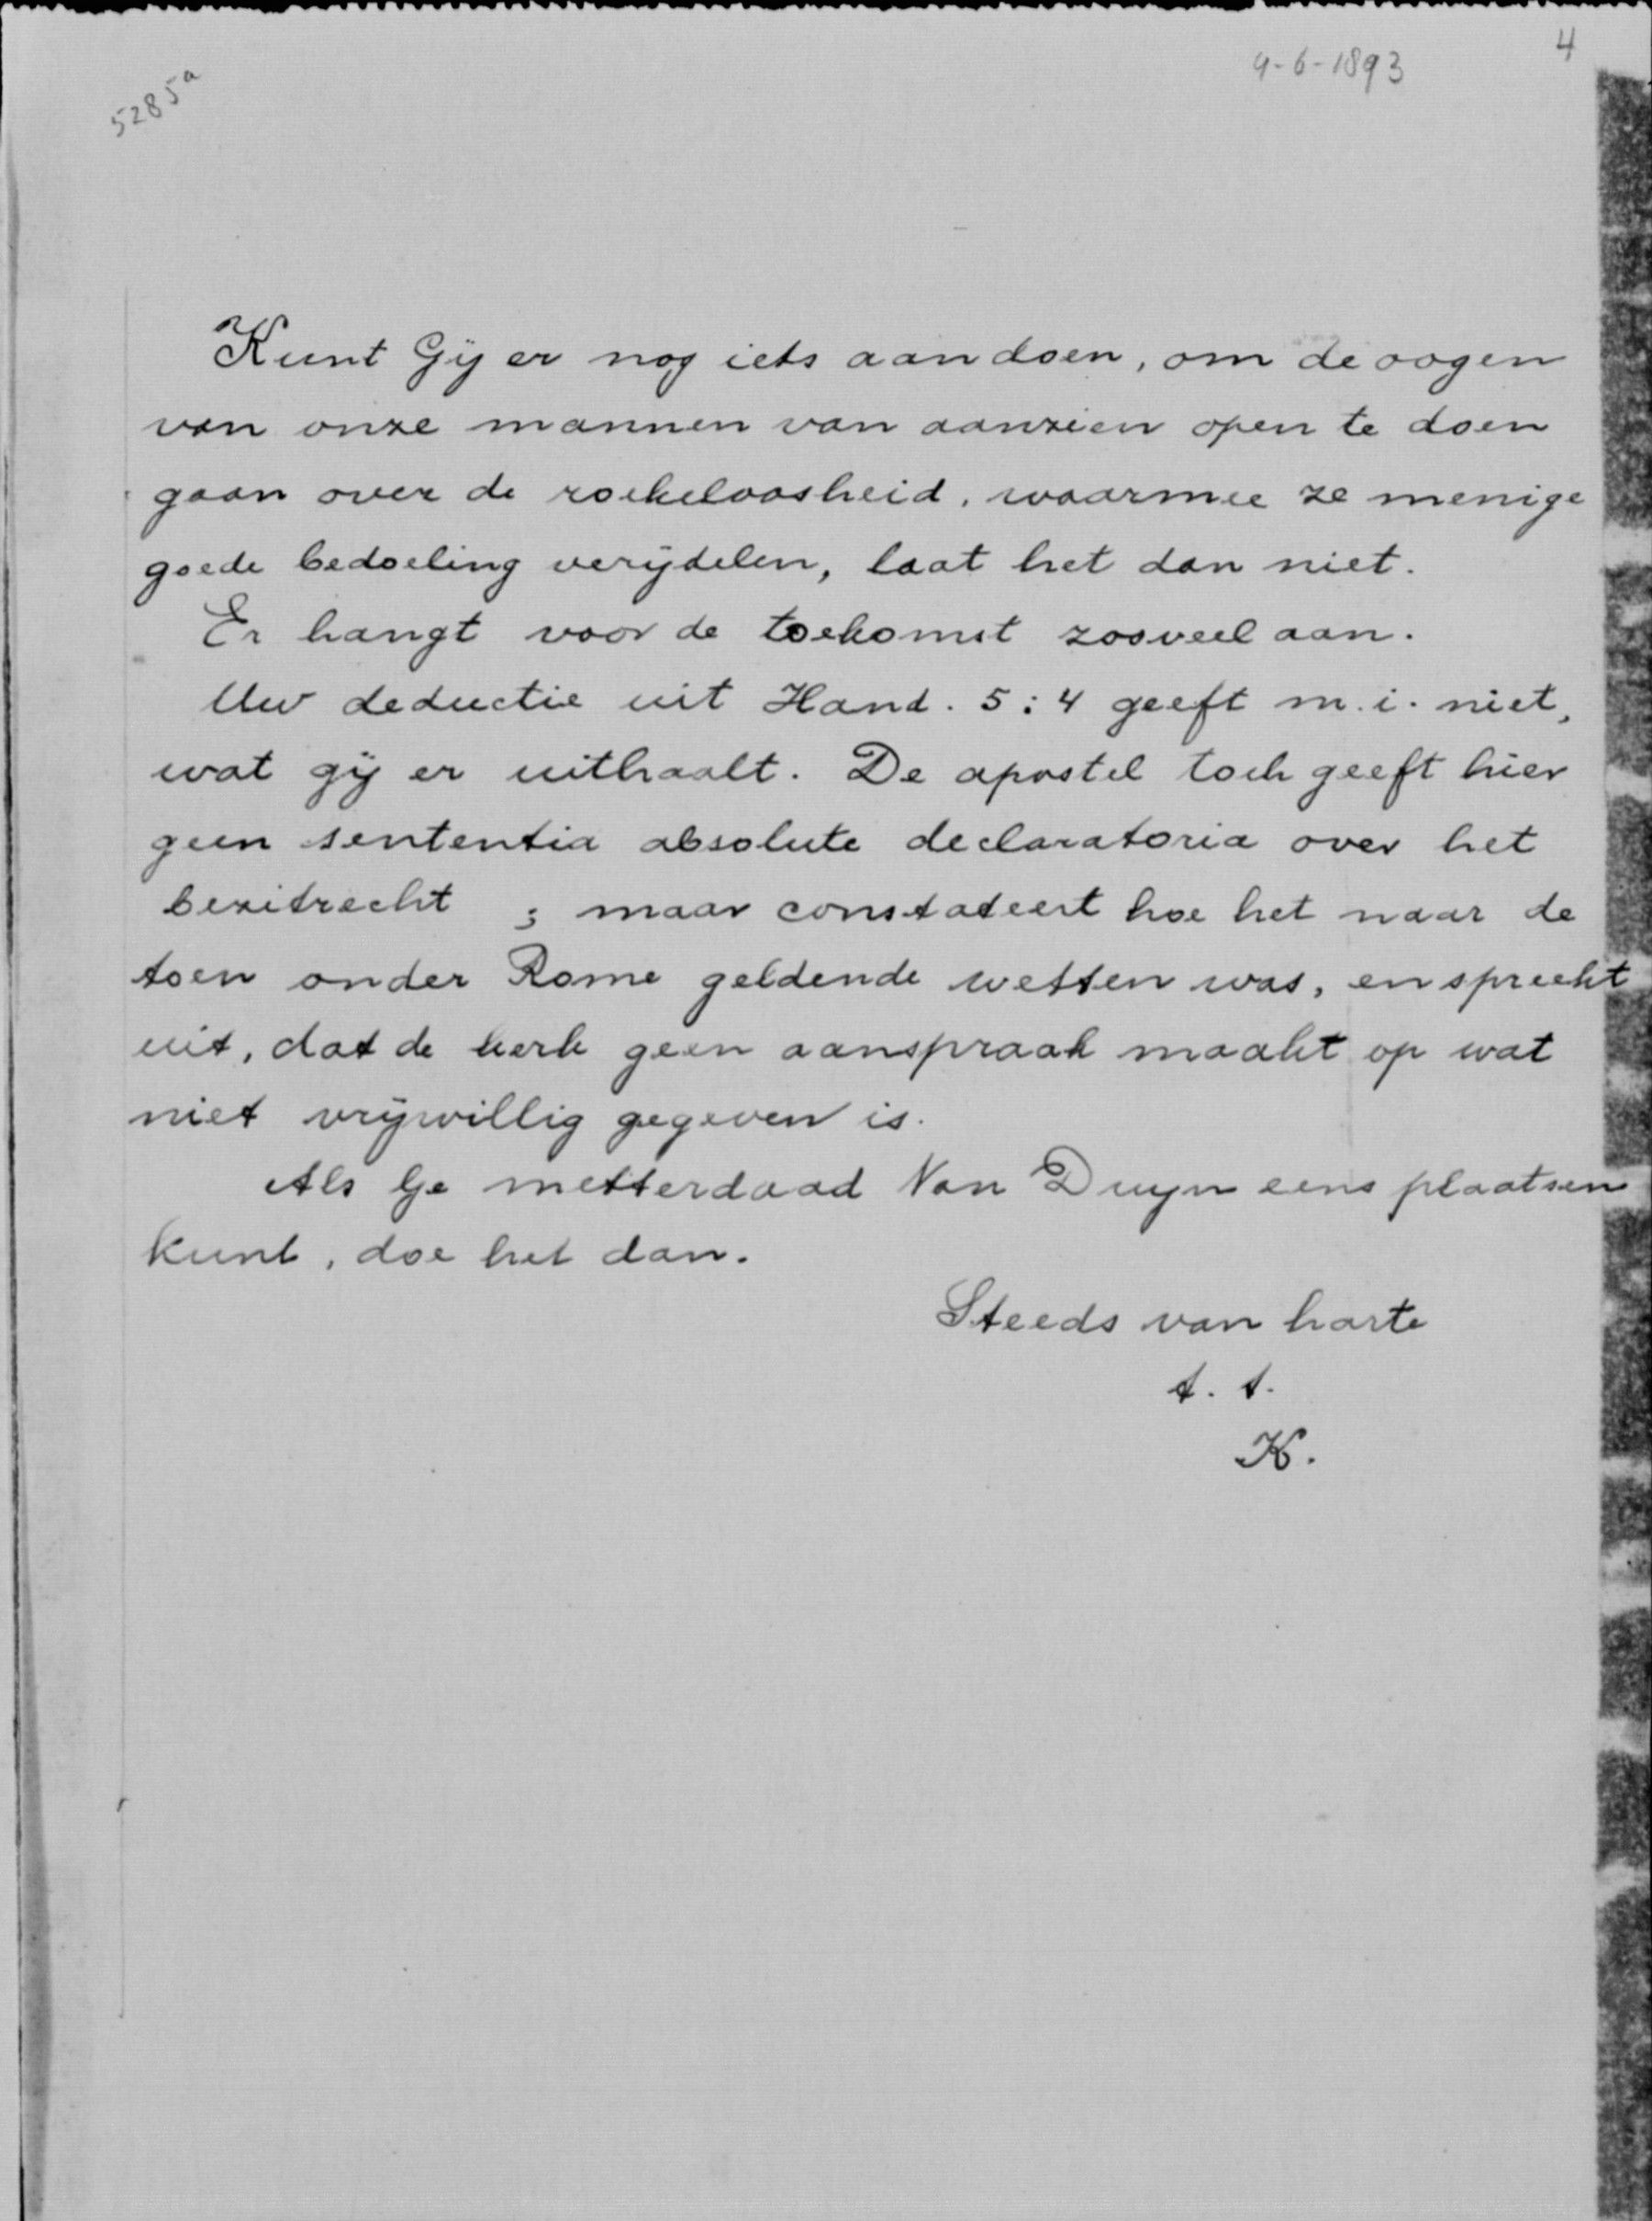 5285a
9-6-1893
4
Kunt Gij er nog iets aan doen, om de oogen
van onze mannen van aanzien open te doen
gaan over de roekeloosheid, waarmee ze menige
goede bedoeling verijdelen, laat het dan niet.
Er hangt voor de toekomst zooveel aan.
Uw deductie uit Hand. 5:4 geeft m.i. niet,
wat gij er uithaalt. De apostel toch geeft hier
geen sententia absolute declaratoria over het
bezitrecht ; maar constateert hoe het naar de
toen onder Rome geldende wetten was, en spreekt
uit, dat de kerk geen aanspraak maakt op wat
niet vrijwillig gegeven is.
Als Ge metterdaad Van Duyn eens plaatsen
kunt, doe het dan.
Steeds van harte
t. t.
K.